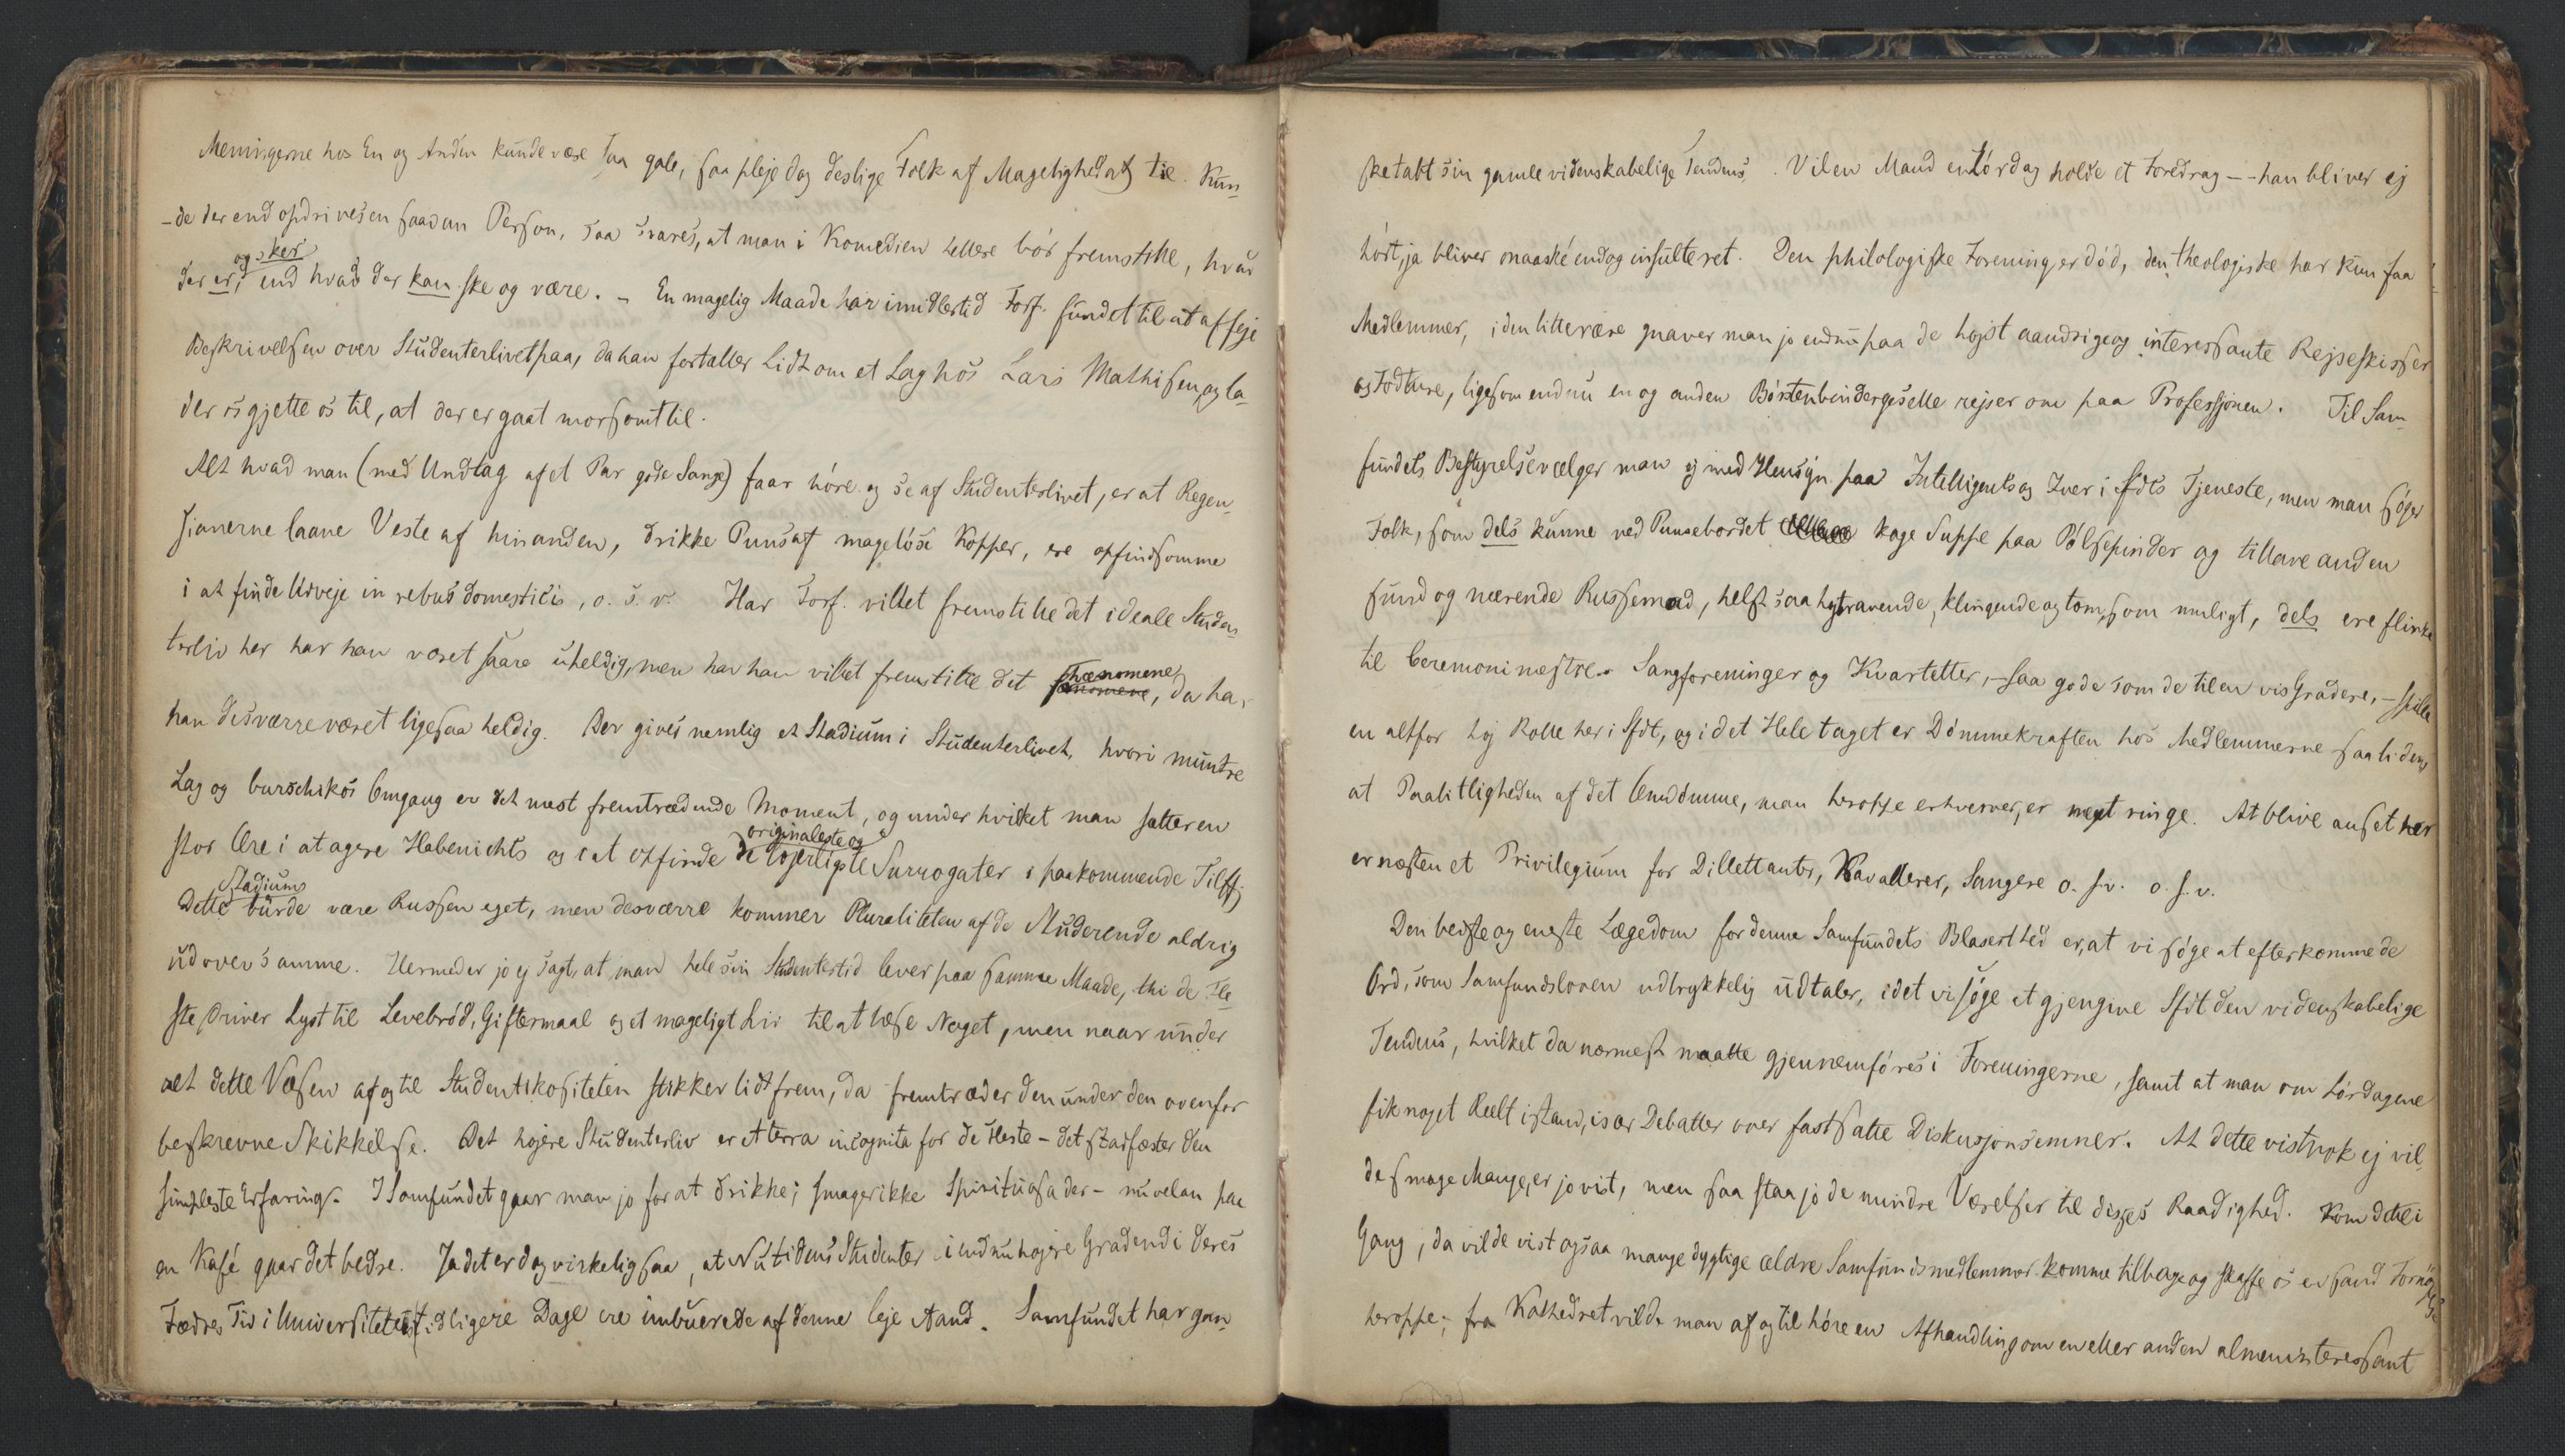 Meningerne hos En og Anden kunde være saa gale, saa pleje dog deslige Folk af Magelighed at tie. Kun-
-de der end opdrives en saadan Person, saa svares, at man i Komedien hellere bör fremstille, hvad
der er, og sker end hvad der kan ske og være. – En magelig Maade har imidlertid Forf. fundet til at affeje
Beskrivelsen over Studenterlivet paa, da han fortæller Lidt om et Lag hos Lars Mathisen, og la-
der os gjette os til, at der er gaat morsomt til.
Alt hvad man (med Undtag af et Par gode Sange) faar höre og se af Studenterlivet, er at Regen-
sianerne laane Veste af hinanden, drikke Puns af magelöse Kopper, ere opfindsomme
i at finde Udveje in rebus domesticis, o. s. v. Har Forf. villet fremstille det ideale Studen-
terliv her har han været saare uheldig, men har han villet fremstille det phænomene, da har
han desværre været ligesaa heldig. Der gives nemlig et Stadium i Studenterlivet, hvori muntre
Lag og burschikos Omgang er det mest fremtrædende Moment, og under hvilket man sætter en
stor Ære i at agere Habenichts og i at opfinde de originaleste og löjerligste Surrogater i paakommende Tilff.
Dette Stadium burde være Russen eget, men desværre kommer Pluraliteten af de Studerende aldrig
ud over samme. Hermed er jo ej sagt, at man hele sin Studentertid lever paa samme Maade, thi de Fle-
ste driver Lyst til Levebröd, Giftermaal og et mageligt Liv til at læse Noget, men naar under
alt dette Væsen af og til Studentikositeten stikker lidt frem, da fremtræder den under den ovenfor
beskrevne Skikkelse. Det højere Studenterliv er et terra incognita for de Fleste – det stadfæster den
simpleste Erfaring. I Samfundet gaar man jo for at drikke; smager ikke Spirituosa der – nu velan paa
en Kafé gaar det bedre. Ja det er dog virkelig saa, at Nutidens Studenter i endnu højere Grad end i deres
Fædres Tid i Universitetets tidligere Dage ere imbuerede af denne leje Aand. Samfundet har gan-
ske tabt sin gamle videnskabelige Tendens. Vil en Mand en Lördag holde et Foredrag – – han bliver ej
hört, ja bliver maaské endog insulteret. Den philologiske Forening er död, den theologiske har kun faa
Medlemmer, i den litterære gnaver man jo endnu paa de højst aandrige og interessante Rejseskisser
og Fodture, ligesom endnu en og anden Börstenbindergeselle rejser om paa Professjonen. Til Sam-
fundets Bestyrelse vælger man ej med Hensyn paa Intelligents og Iver i Sfdts Tjeneste, men man söger
Folk, som dels kunne ved Punsebordet koge Suppe paa Pölsepinder og tillave anden
sund og nærende Russemad, helst saa højtravende, klingende og tom, som muligt, dels ere flinke
til Ceremonimestre. Sangforeninger og Kvartetter, – saa gode som de til en vis Grad ere, – spille
en altfor höj Rolle her i Sfdt, og i det Hele taget er Dömmekraften hos Medlemmerne saa liden,
at Paalitligheden af det Omdömme, man heroppe erhverver, er meget ringe. At blive anset her
er næsten et Privilegium for Dillettanter, Kavallerer, Sangere o. s. v. o. s. v.
Den bedste og eneste Lægedom for denne Samfundets Blaserthed er, at vi söge at efterkomme de
Ord, som Samfundsloven udtrykkelig udtaler, idet vi söge at gjengive Sfdt den videnskabelige
Tendens, hvilket da nærmest maatte gjennemföres i Foreningerne, samt at man om Lördagene
fik noget Reelt istand, især Debatter over fastsatte Diskusjonsemner. At dette vistnok ej vil-
de smage Mange, er jo vist, men saa staa jo de mindre Værelser til disses Raadighed. Kom dette i
Gang, da vilde vist ogsaa mange dygtige ældre Samfundsmedlemmer komme tilbage og skaffe os en sand Fornöjelse
heroppe; fra Kathedret vilde man af og til höre en Afhandling om en eller anden almeninteressant